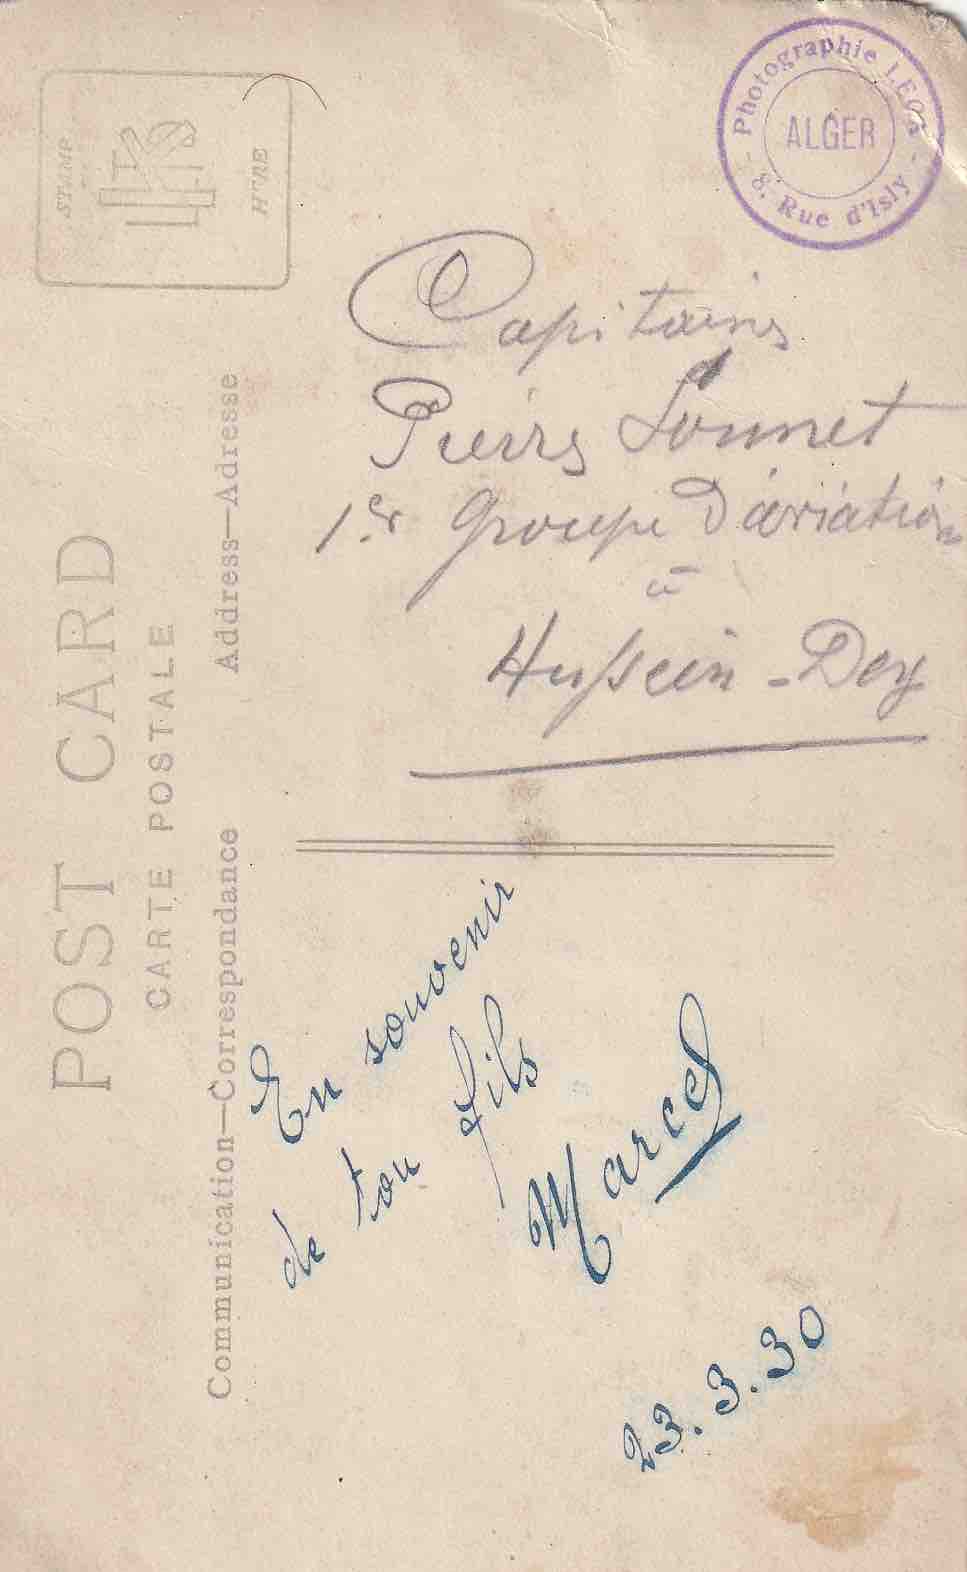 Photographie LEON
ALGER
8, Rue d'Isly
STAMP
HERE
POST CARD
CARTE POSTALE
Communication—Correspondance
Address—Adresse
Capitaine
Pierre Sonnet
1er Groupe D'aviation
à
Hussein-Dey
En souvenir
de ton fils
Marcel
23.3.30